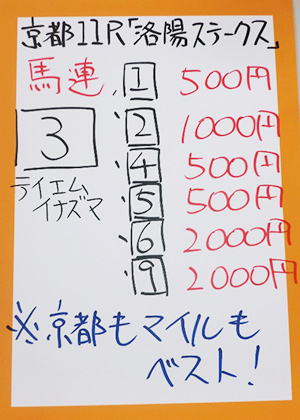 京都11R「洛陽ステークス」
馬連 1 500円
3 2 1000円
4 500円
テイエム 5 500円
イナズマ 6 2000円
9 2000円
※京都もマイルも
ベスト!